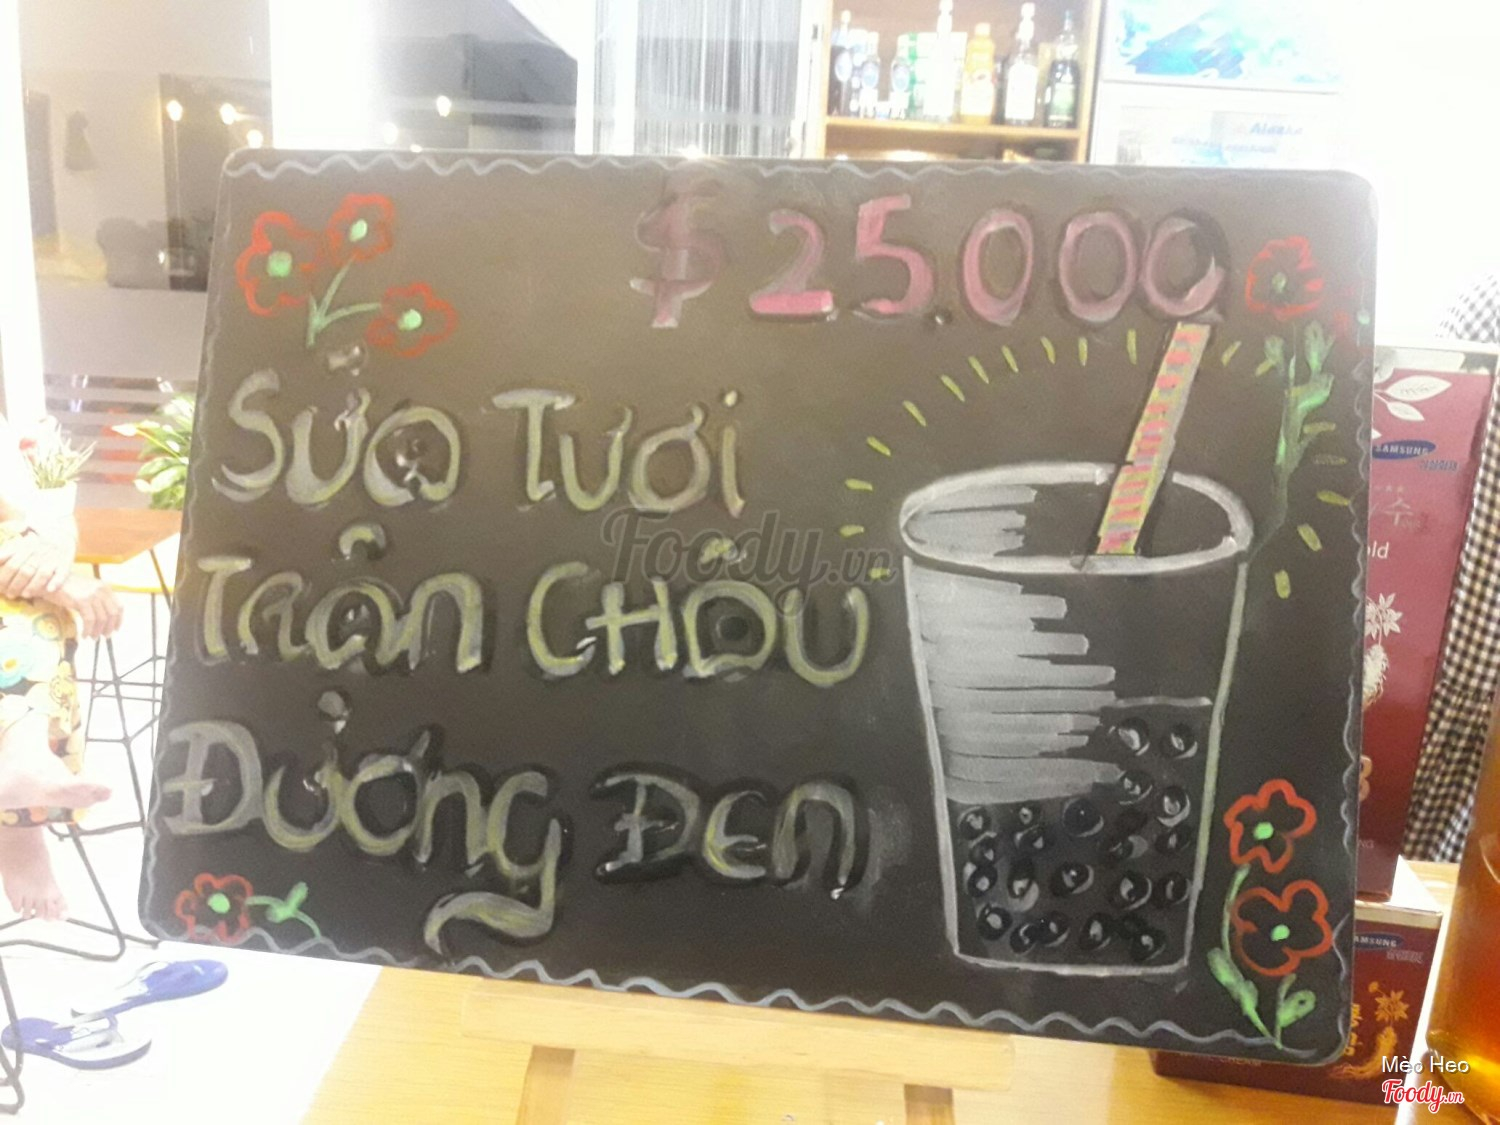 $ 25.000
SỮA TƯƠI
TRÂN CHÂU
ĐƯỜNG ĐEN
Foody.vn
SAMSUNG
SAMSUNG
Mèo Heo
Foody.vn